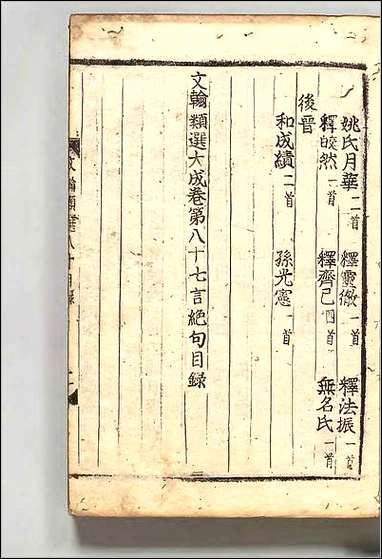 姚氏月華二首 釋靈徹一首 釋法振一首
釋皎然一首 釋齊己四首 無名氏一首
後晉
和成績二首 孫光憲一首
文翰類選大成卷第八十七言絕句目録
文翰類選八十目錄